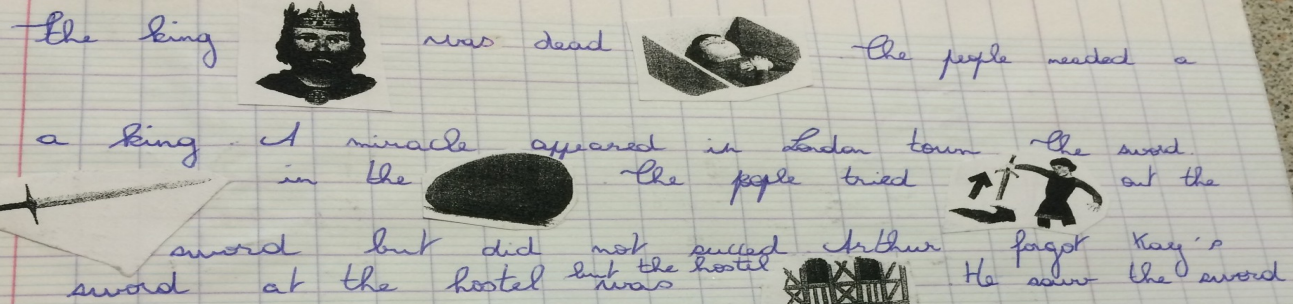 the king was dead the people needed a
a king. A miracle appeared in London town the sword.
in the the pople tried out the
sword but did not succed Arthur forgot Kay's
but the hostel
sword at the hostel was He saw the sword